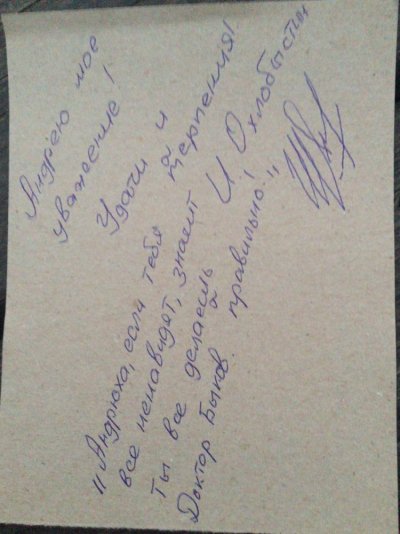 Андрею мое
уважение!
Удачи и
терпения!
И Охлобыстин
"Андрюха, если тебя
все ненавидят, значит
ты все делаешь
правильно!"
Доктор Быков.